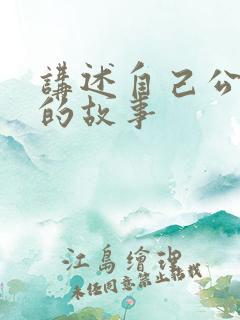 講述自己公
的故事
江島繪理
未任同意禁止轉載